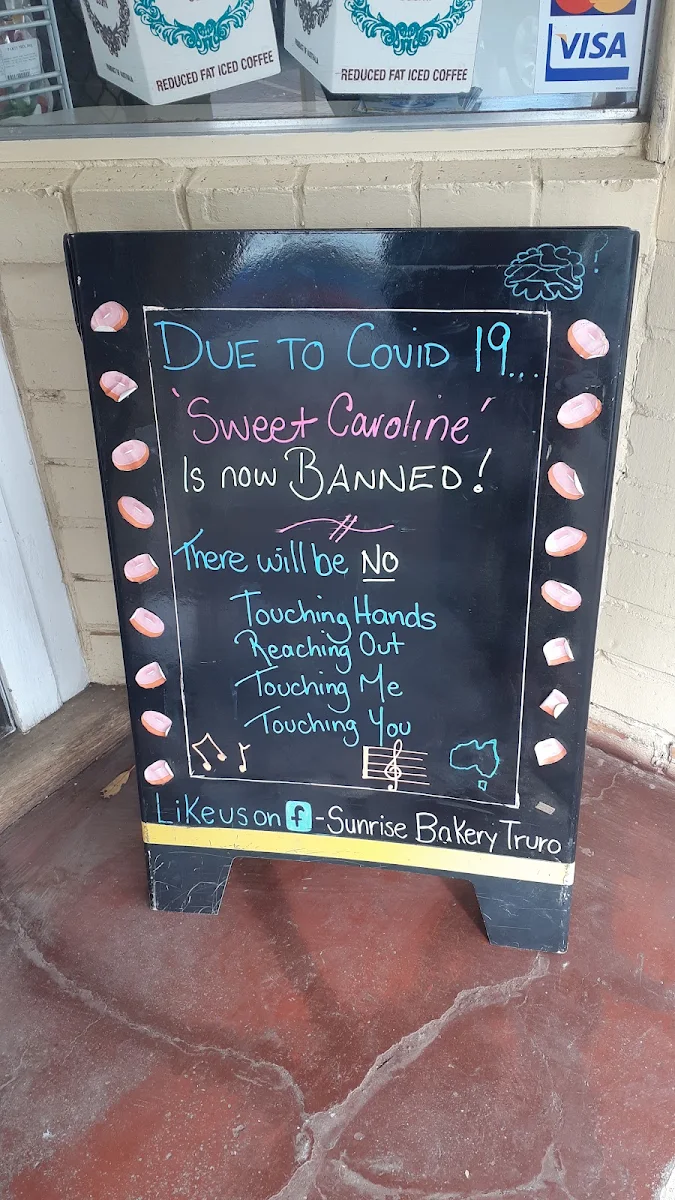 REDUCED FAT ICED COFFEE
REDUCED FAT ICED COFFEE
VISA
?
DUE TO COVID 19...
'Sweet Caroline'
Is now BANNED!
There will be NO
Touching Hands
Reaching Out
Touching Me
Touching You
Like us on f - Sunrise Bakery Truro